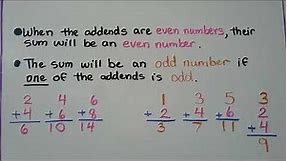 •When the addends are even numbers, their
sum will be an even number.
•The sum will be an odd number if
one of the addends is odd.
2 4 6 1 3 5 3
+4 +6 +8 +2 +4 +6 2
6 10 14 3 7 11 +4
9